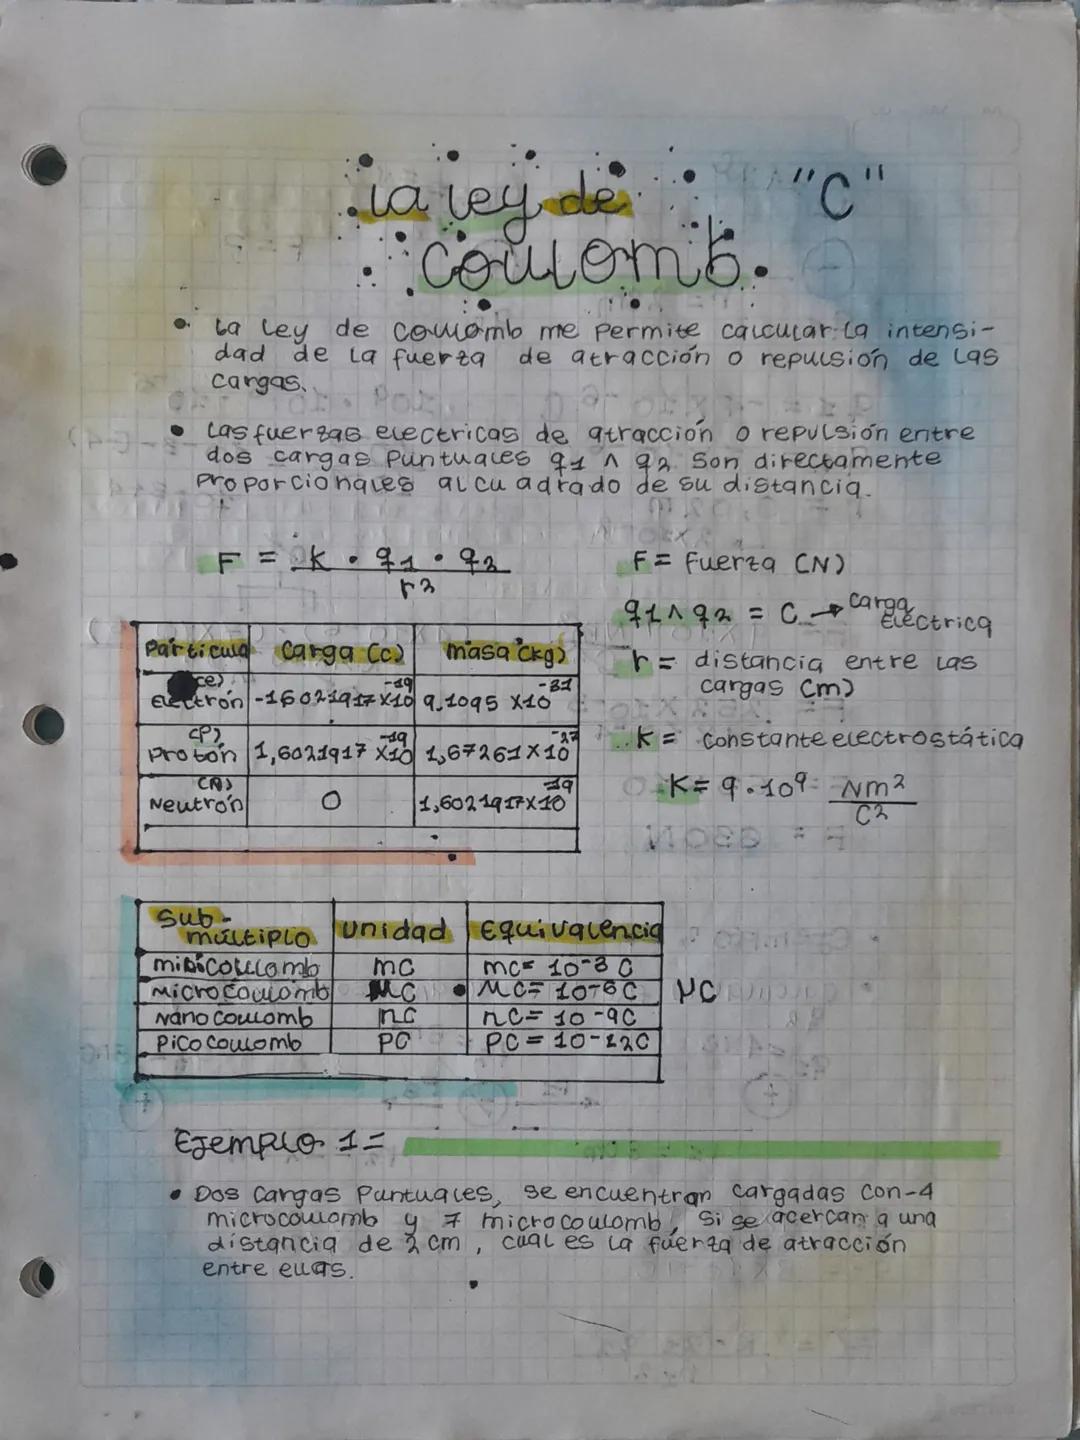 La ley de "C"
Coulomb.
• La ley de Coulomb me permite calcular la intensi-
dad de la fuerza de atracción o repulsión de las
cargas.
• Las fuerzas electricas de atracción o repulsión entre
dos cargas puntuales q1 ∧ q2 son directamente
proporcionales al cuadrado de su distancia.
F = K · q1 · q2
r2
F = Fuerza (N)
q1 ∧ q2 = C → carga eléctrica
r = distancia entre las
cargas (m)
K = constante electrostática
K = 9 · 10⁹ Nm²
C²
Particula Carga (c) masa (kg)
(e)
Electrón -16021917×10⁻¹⁹ 9.1095 ×10⁻³¹
(P)
Protón 1,6021917 ×10⁻¹⁹ 1,67261×10⁻²⁷
Neutrón 0 1,6021917×10⁻¹⁹
Sub-
múltiplo unidad Equivalencia
milicoulomb mC mC= 10-3 C
microcoulomb MC MC= 10-6C μC
Nanocoulomb nC nC= 10-9C
Picocoulomb PC PC= 10-12C
Ejemplo 1=
• Dos cargas Puntuales, se encuentran cargadas con -4
microcoulomb y 7 microcoulomb, si se acercan a una
distancia de 2 cm, cuál es la fuerza de atracción
entre ellas.